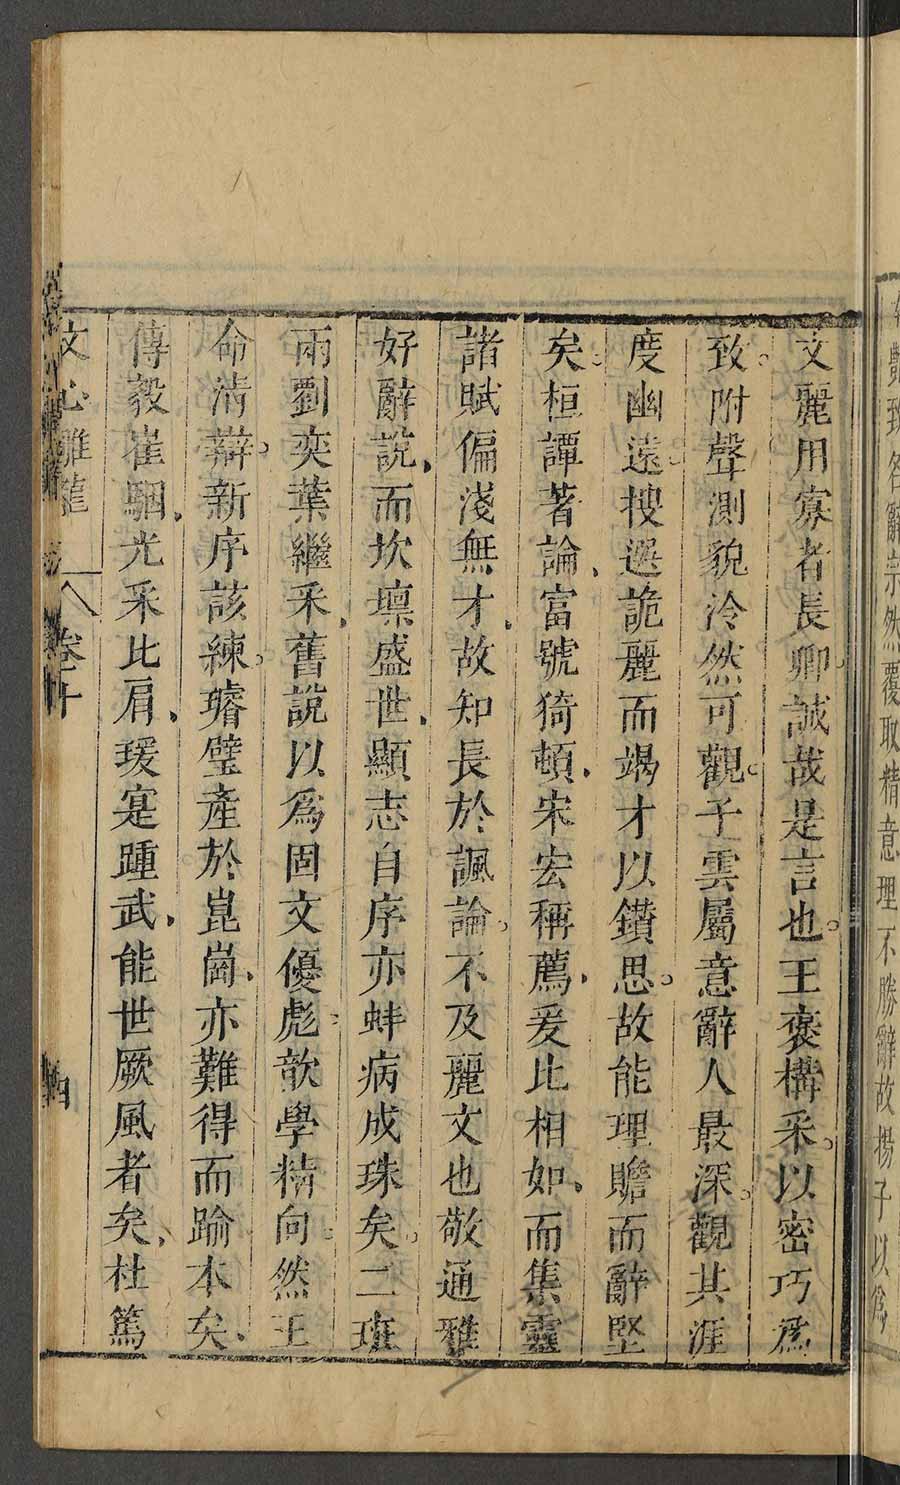 艷致名辭宗然覆取精意理不勝辭故揚子以爲
文麗用寡者長卿誠哉是言也王褒構采以密巧爲
致附聲測貌泠然可觀子雲屬意辭人最深觀其涯
度幽遠搜選詭麗而竭才以鑽思故能理贍而辭堅
矣桓譚著論富號猗頓宋宏稱薦爰比相如而集靈
諸賦偏淺無才故知長於諷論不及麗文也敬通雅
好辭說而坎壈盛世顯志自序亦蚌病成珠矣二班
兩劉奕葉繼采舊說以爲固文優彪歆學精向然王
命清辯新序該練璿璧產於崑崗亦難得而踰本矣
傅毅崔駰光采比肩瑗寔踵武能世厥風者矣杜篤
文心雕龍 卷十 四